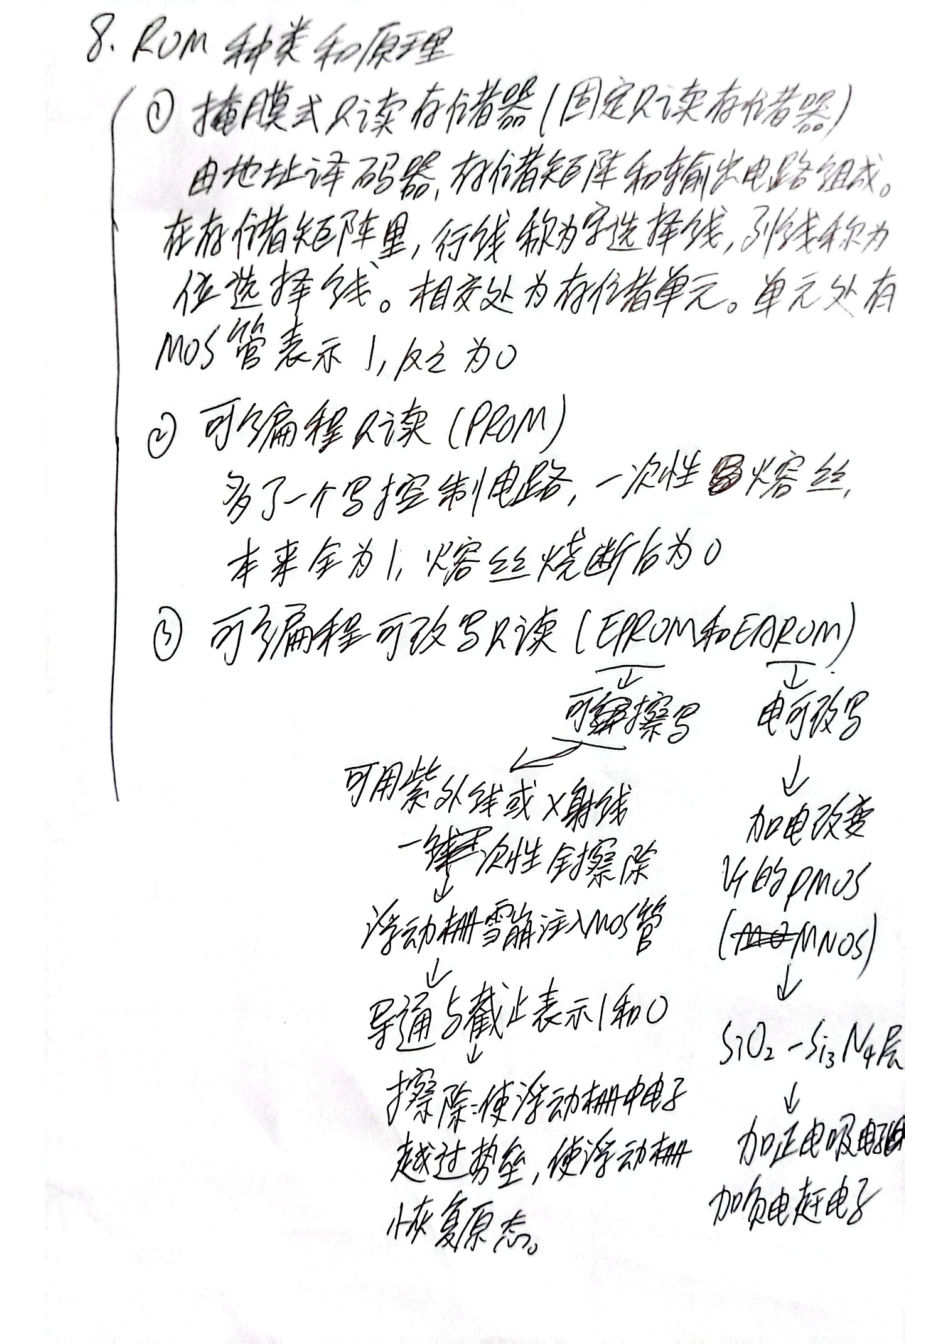 8. ROM 种类和原理
① 掩膜式只读存储器(固定只读存储器)
由地址译码器,存储矩阵和输出电路组成。
在存储矩阵里,行线称为字选择线,列线称为
位选择线。相交处为存储单元。单元处有
MOS管表示1,反之为0
② 可编程只读(PROM)
多了一个写控制电路,一次性熔丝,
本来全为1,熔丝烧断后为0
③ 可编程可改写只读(EPROM和EAROM)
↓
可擦写
可用紫外线或X射线
一次性全擦除
↓
浮动栅雪崩注入MOS管
↓
导通与截止表示1和0
↓
擦除:使浮动栅中电子
越过势垒,使浮动栅
恢复原态。
↓
电可改写
↓
加电改变
VT的PMOS
(MNOS)
↓
SiO2-Si3N4层
↓
加正电吸电子
加负电赶电子